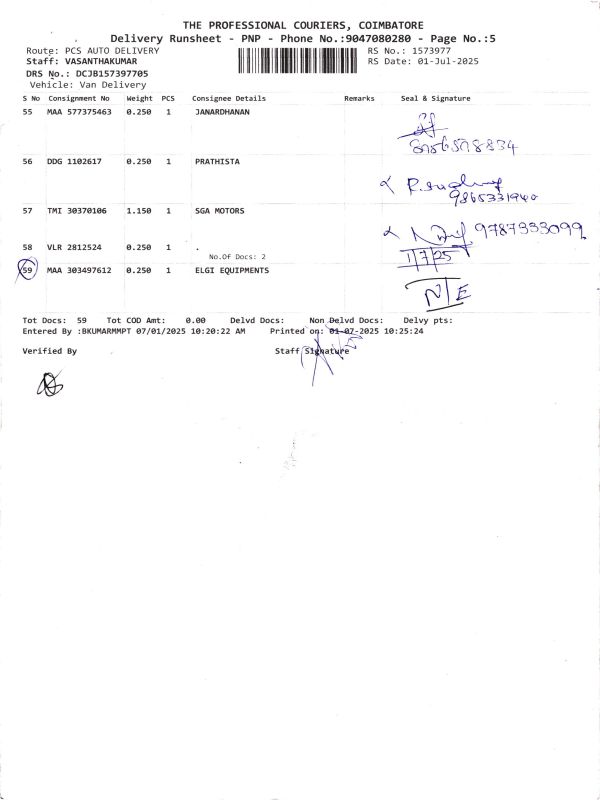 THE PROFESSIONAL COURIERS, COIMBATORE
Delivery Runsheet - PNP - Phone No.:9047080280 - Page No.:5
Route: PCS AUTO DELIVERY RS No.: 1573977
Staff: VASANTHAKUMAR RS Date: 01-Jul-2025
DRS No.: DCJB157397705
Vehicle: Van Delivery
S No Consignment No Weight PCS Consignee Details Remarks Seal & Signature
55 MAA 577375463 0.250 1 JANARDHANAN
56 DDG 1102617 0.250 1 PRATHISTA
9865331940
57 TMI 30370106 1.150 1 SGA MOTORS
9787333099
58 VLR 2812524 0.250 1 . 1/7/25
No.Of Docs: 2
59 MAA 303497612 0.250 1 ELGI EQUIPMENTS
N/E
Tot Docs: 59 Tot COD Amt: 0.00 Delvd Docs: Non Delvd Docs: Delvy pts:
Entered By :BKUMARMMPT 07/01/2025 10:20:22 AM Printed on: 01-07-2025 10:25:24
Verified By Staff Signature